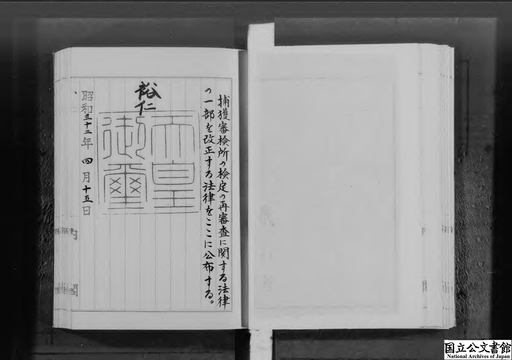 捕獲審検所の検定の再審査に関する法律
の一部を改正する法律をここに公布する。
裕仁
天皇
御璽
昭和三十二年四月十五日
国立公文書館
National Archives of Japan